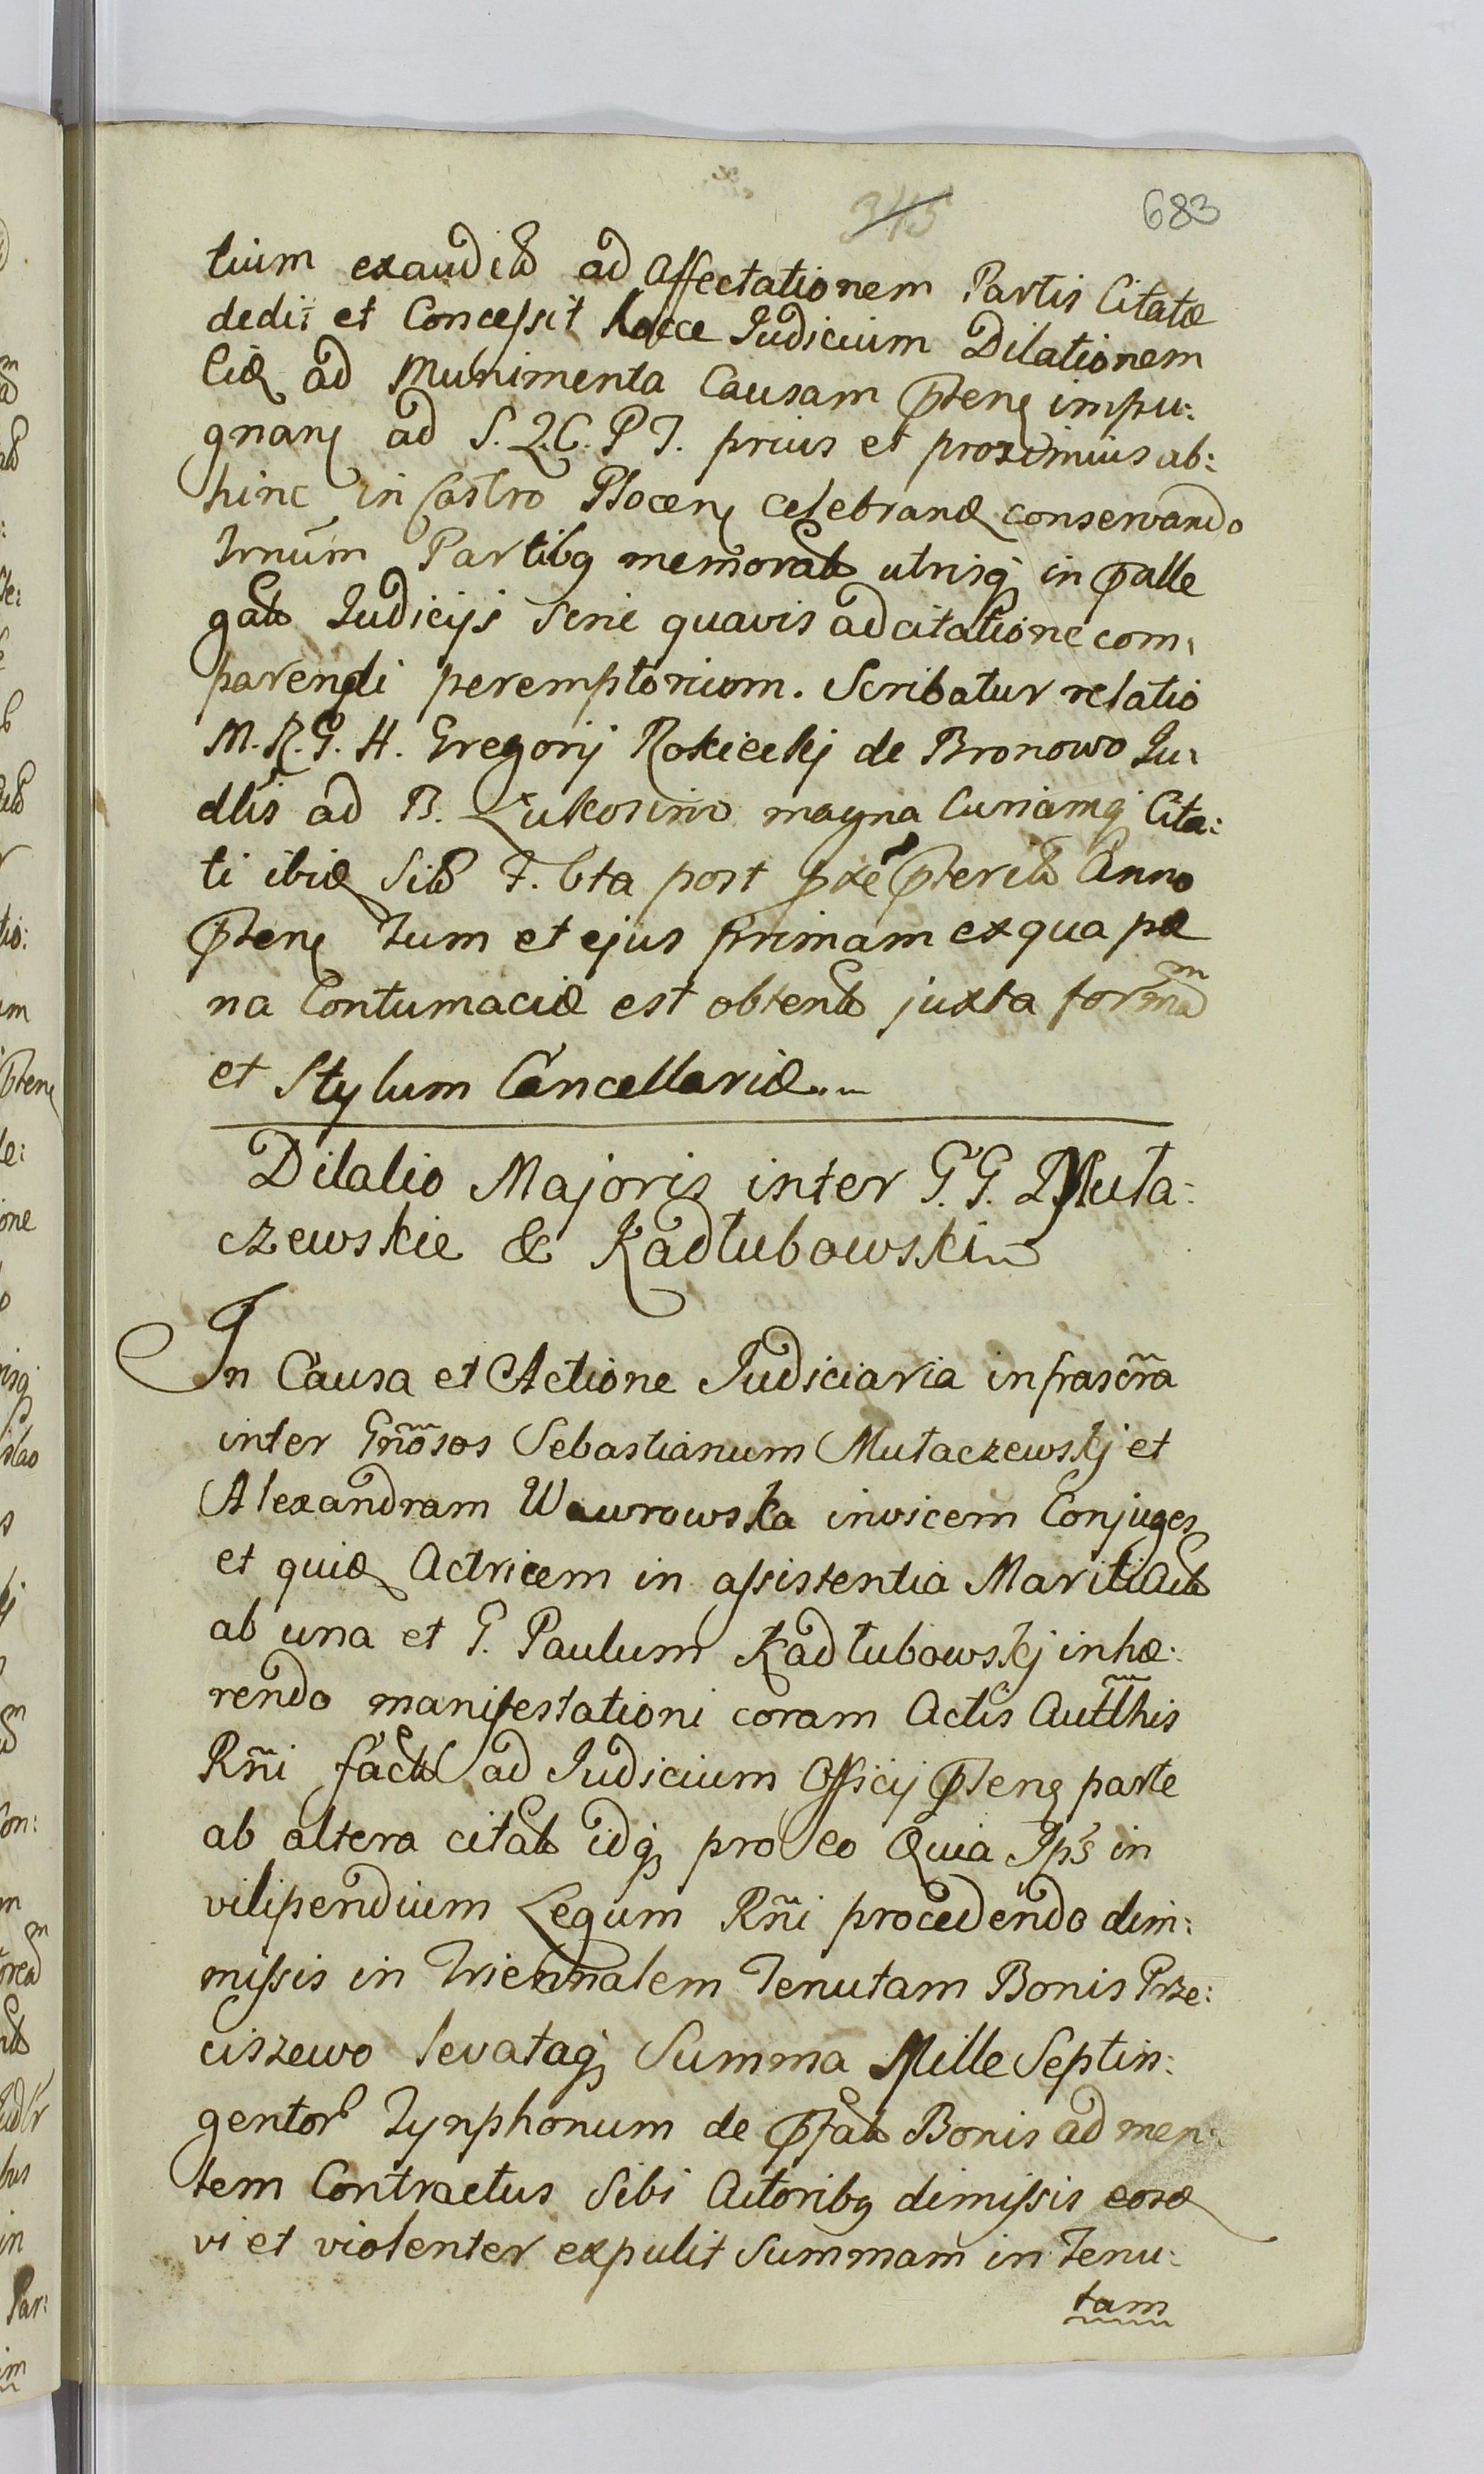 345 683
tium exaudit ad Affectationem Partis Citatæ
dedit et Concessit hocce Judicium Dilationem
ad Munimenta Causam pnten impu:
gnan ad S. Q. C. P. T. prius et proximius ab:
hinc in Castro Plocen celebrand conservando
Trnum Partibq memorat utrisq in palle
gat Judicijs Serie quavis adcitatione com:
parendi peremptorium. Scribatur relatio
M. R. G. H. Gregorij Rokickj de Bronowo Ju:
dlis ad B. Lukosino magna Curiamq Cita:
ti ibid Sit F. 6ta post pterit Anno
pnten tum et ejus primam ex qua pæ
na Contumaciæ est obtent juxta formam
et Stylum Cancellariæ.
Dilatio Majoris inter G. G. Muta:
czewskie & Kadłubowski
In Causa et Actione Judiciaria infrascra
inter Gnosos Sebastianum Mutaczewskj et
Alexandram Wawrowska invicem Conjuges
et quid Actricem in assistentia Mariti Act
ab una et G. Paulum Kadłubowskj inhæ:
rendo manifestationi coram Actis Autthis
Rni fact ad Judicium Officij pnten parte
ab altera citat idq pro eo Quia Ips in
vilipendium Legum Rni procedendo dim:
missis in Triennalem Tenutam Bonis Prze:
ciszewo levataq Summa Mille Septin:
gentor Tynphonum de pfat Bonis ad men:
tem Contractus Sibi Actoribq dimissis eosd
vi et violenter expulit Summam in Tenu:
tam